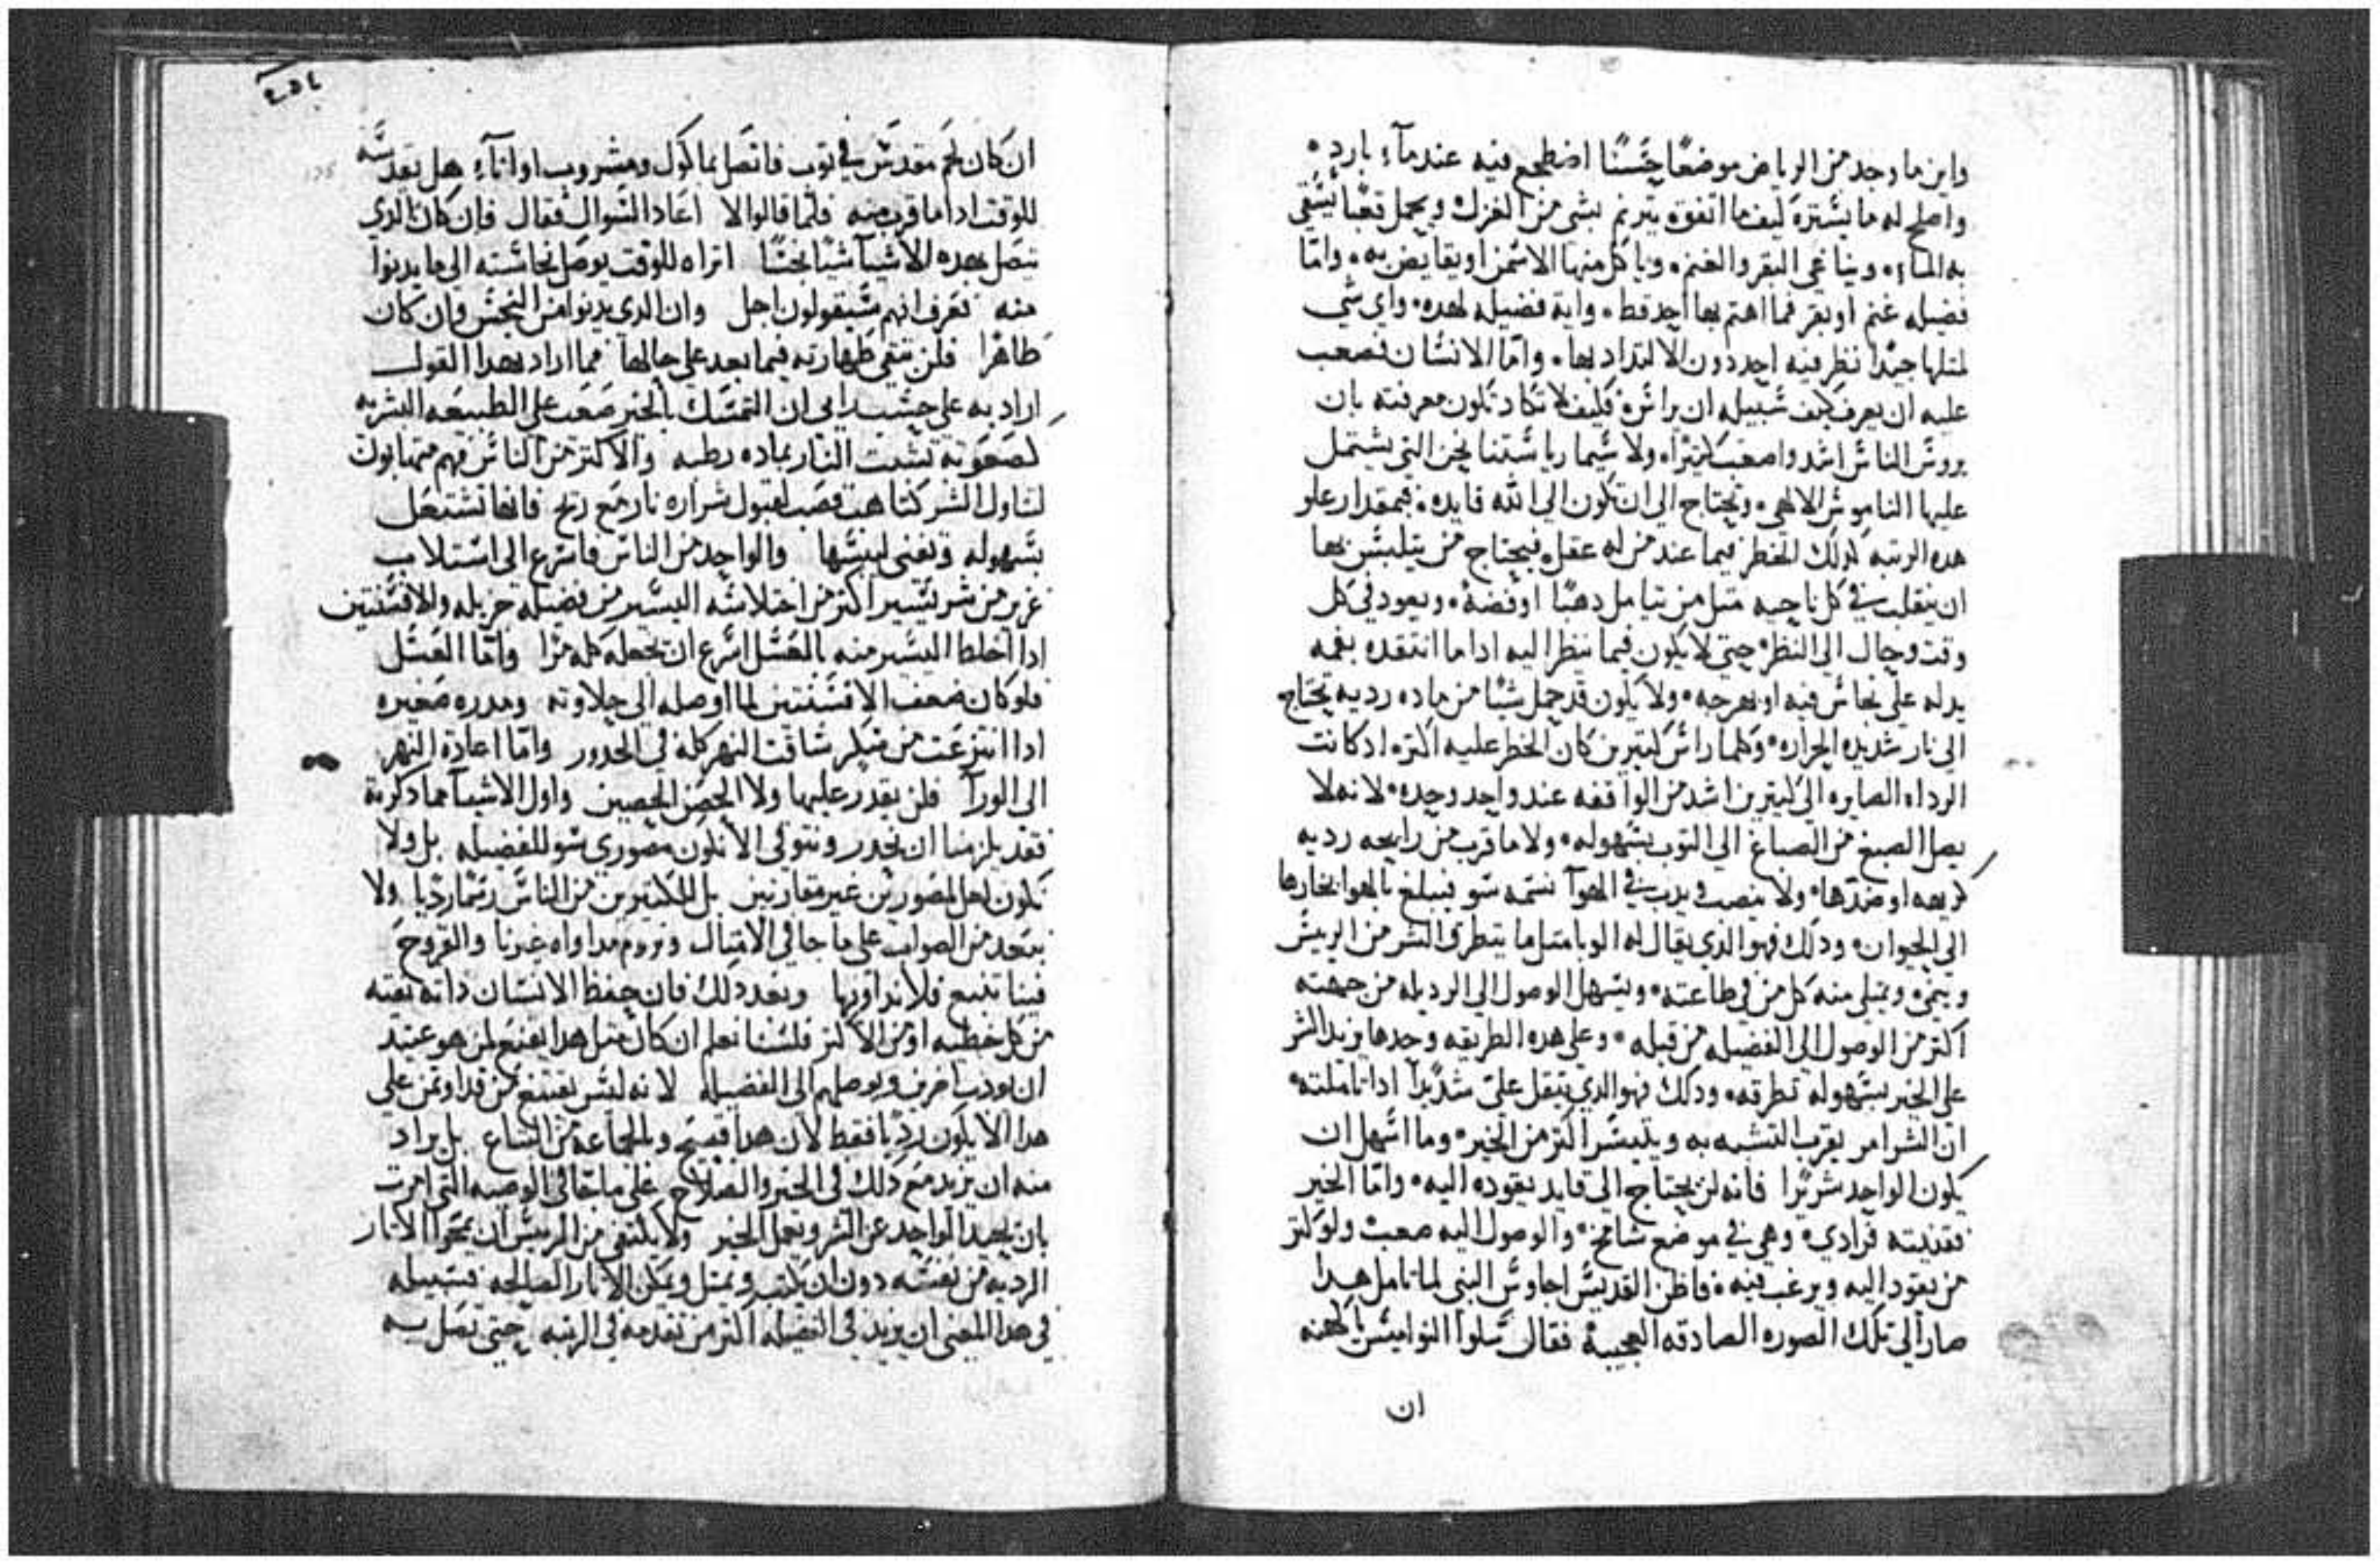 واين ما وجد من الرياض موضعًا حسنًا اضطجع فيه عند مآء بارد
واصلح له ما يستره كيفما اتفق ويترنم بشي من الغزل ويحمل قعبًا يستقى
به المآء وينا غى البقر والغنم وياكل منها الاسمن او يقايض به واما
فضيله غنم او بقر فما اهتم بها احد قط وايه فضيله لهده واى شي
لمثلها جيدا نظر فيه احد دون الالتداد بها واما الانسان فصعب
عليه ان يعرف كيف سبيله ان يراس فكيف لا تكاد تكون معرفته بان
يروس الناس اشد واصعب كثيرا ولا سيما رياستنا نحن التي يشتمل
عليها الناموس الالاهي وتحتاج الى ان تكون الى الله قايده فبمقدار علو
هده الرتبه كدلك الخطر فيما عند من له عقل فيحتاج من يتلبس بها
ان يتقلب في كل ناحيه مثل من يتامل دهبًا او فضة ويعود في كل
وقت وحال الى النظر حتى لا يكون فيما ينظر اليه ادا ما انتقده بفهمه
يدله على نحاس فيه او بهرجه ولا يكون قد حمل شيئًا من ماده رديه تحتاج
الى نار شديده الحراره وكلما راس كثيرين كان الخطر عليه اكثر اد كانت
الرداه الصايره الى كثيرين اشد من الواقفه عند واحد وحده لانه لا
يصل الصبغ من الصباغ الى التوب بسهوله ولا ما قرب من رايحه رديه
كريهه او ضدها ولا ينصب ويدب في الهوآ نسمه سو فيبلغ بالهوا بخارها
الى الحيوان ودلك فهو الدي يقال له الوبا مثل ما يتطرق الشر من الريس
وينمى ويمتلي منه كل من في طاعته ويسهل الوصول الى الرديله من جهته
اكثر من الوصول الى الفضيله من قبله وعلى هده الطريقه وحدها يزيد الشر
على الخير بسهوله تطرقه ودلك فهو الدي يثقل على شديدا ادا تاملته
ان الشر امر يقرب التشبه به ويتيسر اكثر من الخير وما اسهل ان
يكون الواحد شريرا فانه لن يحتاج الى قايد يقوده اليه واما الخير
فقنيته فرادى وهى في موضع شامخ والوصول اليه صعب ولو كثر
من يقود اليه ويرغب فيه فاظن القديس اجاوس النبي لما تامل هدا
صار الى تلك الصوره الصادقه العجيبة فقال سلوا النواميس يا كهنه
ان
ان كان لحم مقدس في توب فاتصل بماكول ومشروب او انآء هل يقدسه
للوقت ادا ما قرب منه فلما قالوا لا اعاد السوال فقال فان كان الدي
يتصل بهده الاشيا شيا نجسًا اتراه للوقت يوصل نجاسته الى ما يدنوا
منه فعرف انهم سيقولون اجل وان الدي يدنوا من النجس وان كان
طاهرا فلن تبقى طهارته فيما بعد على حالها فما اراد بهدا القول
اراد به على حسب رايي ان التمسك بالخير صعب على الطبيعه البشريه
كصعوبه تشبت النار بماده رطبه والاكثر من الناس فهم متهايون
لتناول الشر كتاهب قصب لقبول شراره نار مع ريح فانها تشتعل
بسهوله وتفنى ليبسها والواحد من الناس فاسرع الى استلاب
غزير من شر يسير اكثر من اختلاسه اليسير من فضيله جزيله والافسنتين
ادا اختلط اليسير منه بالعسل اسرع ان يجعله كله مرا واما العسل
فلو كان ضعف الافسنتين لما اوصله الى حلاوته ومدره صغيره
ادا انتزعت من سكر ساقت النهر كله في الحدور واما اعادة النهر
الى الورآ فلن يقدر عليها ولا الحصن الحصين واول الاشيآ مما دكرته
فقد يلزمنا ان نحدر ونتوقى الا نكون مصوري سو للفضيله بل ولا
نكون لعل مصورين غير متقارنين بل للكثيرين من الناس رسمًا رديا ولا
نبعد من الصواب على ما جا في الامثال ونروم مداواه غيرنا والقروح
فينا تنبع فلا نداويها وبعد دلك فان حفظ الانسان داته نقيه
من كل خطيه او من الاكثر فلسنا نعلم ان كان مثل هدا يقنع لمن هو عتيد
ان يودب اخرين ويوصلهم الى الفضيله لانه ليس يقتنع ممن قد اوتمن على
هدا الا يكون رديا فقط لان هدا قبيح ولجماعه من التباع بل يراد
منه ان يزيد مع دلك في الخير والصلاح على ما جا في الوصيه التي امرت
بان يحيد الواحد عن الشر ويعمل الخير ولا يكتفى من الريس ان يمحوا الاثار
الرديه من نفسه دون ان يكتب ويمثل ويمكن الاثار الصالحه فسبيله
في هدا المعنى ان يزيد في الفضيله اكثر من تقدمه في الرتبه حتى تصل به